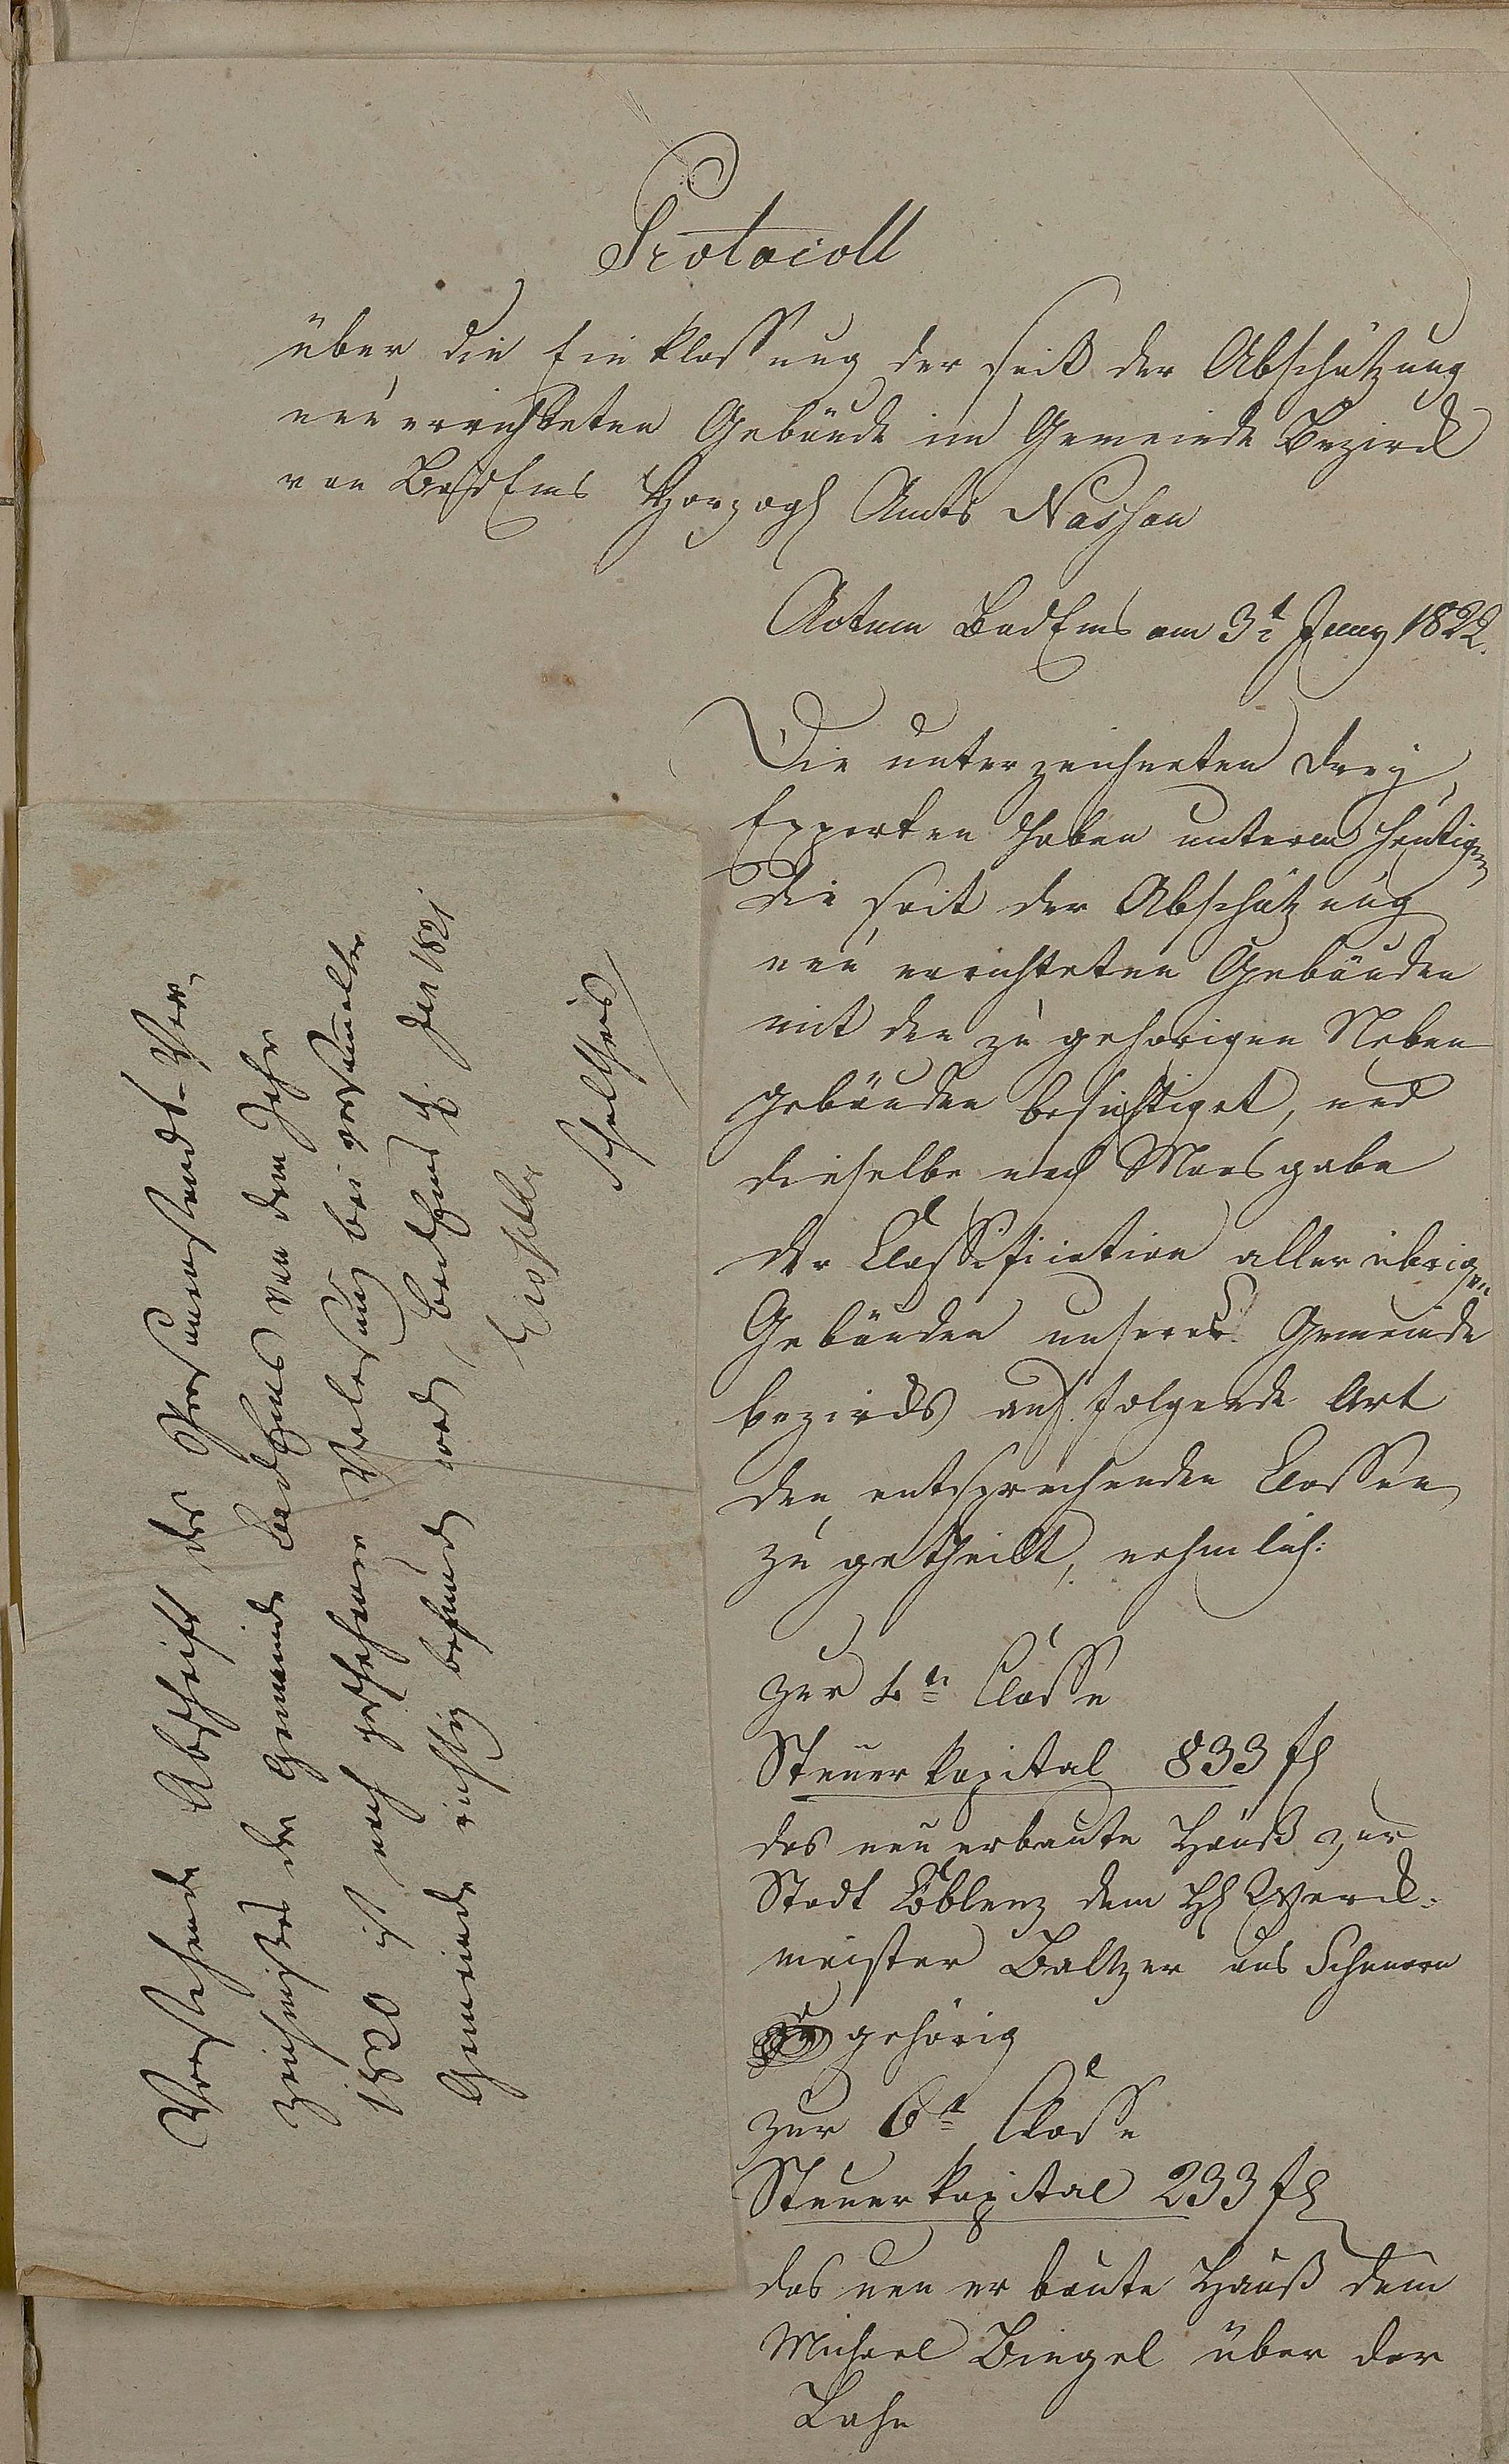 Protocoll
über die Einklassung der seit der Abschätzung
neu errichteten Gebäude im Gemeinde Bezirck
von BadEms Herzogl Amts Nassau
Actum BadEms am 3t Juny 1822.
Die unterzeichneten drey
Experten haben unterm heutigen
die seit der Abschätzung
neu errichteten Gebäuden
mit den zu gehörigen Neben
gebäuden besichtiget, und
dieselbe nach Maasgabe
der Classification aller übrigen
Gebäuden unseres Gemeinde
bezircks auf folgende Art
den entsprechenden Classen
zu getheilt, nehmlich:
zur 4n Classe
Steuer kapital 833 fl
das neu erbaute Hauß zur
Stadt Coblenz dem H Werck-
meister Baltzer aus Scheuern
gehörig
zur 6t Classe
Steuer kapital 233 fl
das neu erbaute Hauß dem
Michael Bingel über der
Lahn
Vorstehende Abschrift des Personenstands-Ver-
zeichnißes der Gemeinde BadEms von dem Jahr
1820 ist nach geschehener Verlesung bei versammelter
Gemeinde richtig befunden word, BadEms d. Jan 1821
Schultheis